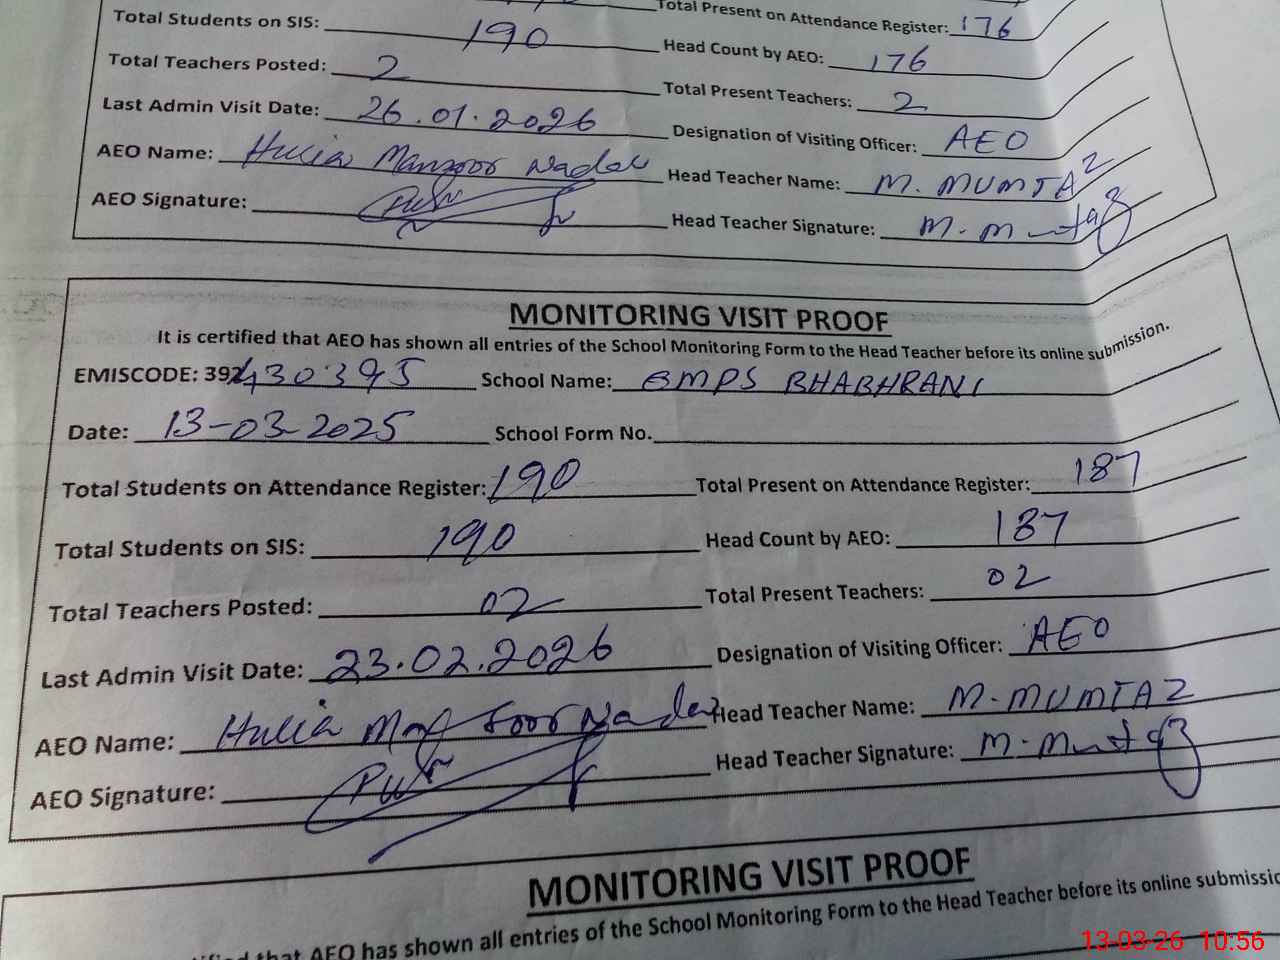 Total Students on SIS: 190 Total Present on Attendance Register: 176
Total Teachers Posted: 2 Head Count by AEO: 176
Last Admin Visit Date: 26.01.2026 Total Present Teachers: 2
AEO Name: Manzoor Designation of Visiting Officer: AEO
AEO Signature: Head Teacher Name: M. MUMTAZ
Head Teacher Signature: M. Mumtaz
MONITORING VISIT PROOF
It is certified that AEO has shown all entries of the School Monitoring Form to the Head Teacher before its online submission.
EMISCODE: 392430395 School Name: GMPS BHABHRANI
Date: 13-03-2025 School Form No.
Total Students on Attendance Register: 190 Total Present on Attendance Register: 187
Total Students on SIS: 190 Head Count by AEO: 187
Total Teachers Posted: 02 Total Present Teachers: 02
Last Admin Visit Date: 23.02.2026 Designation of Visiting Officer: AEO
AEO Name: Head Teacher Name: M. MUMTAZ
AEO Signature: Head Teacher Signature: M. Mumtaz
MONITORING VISIT PROOF
that AEO has shown all entries of the School Monitoring Form to the Head Teacher before its online submissio
13-03-26 10:56